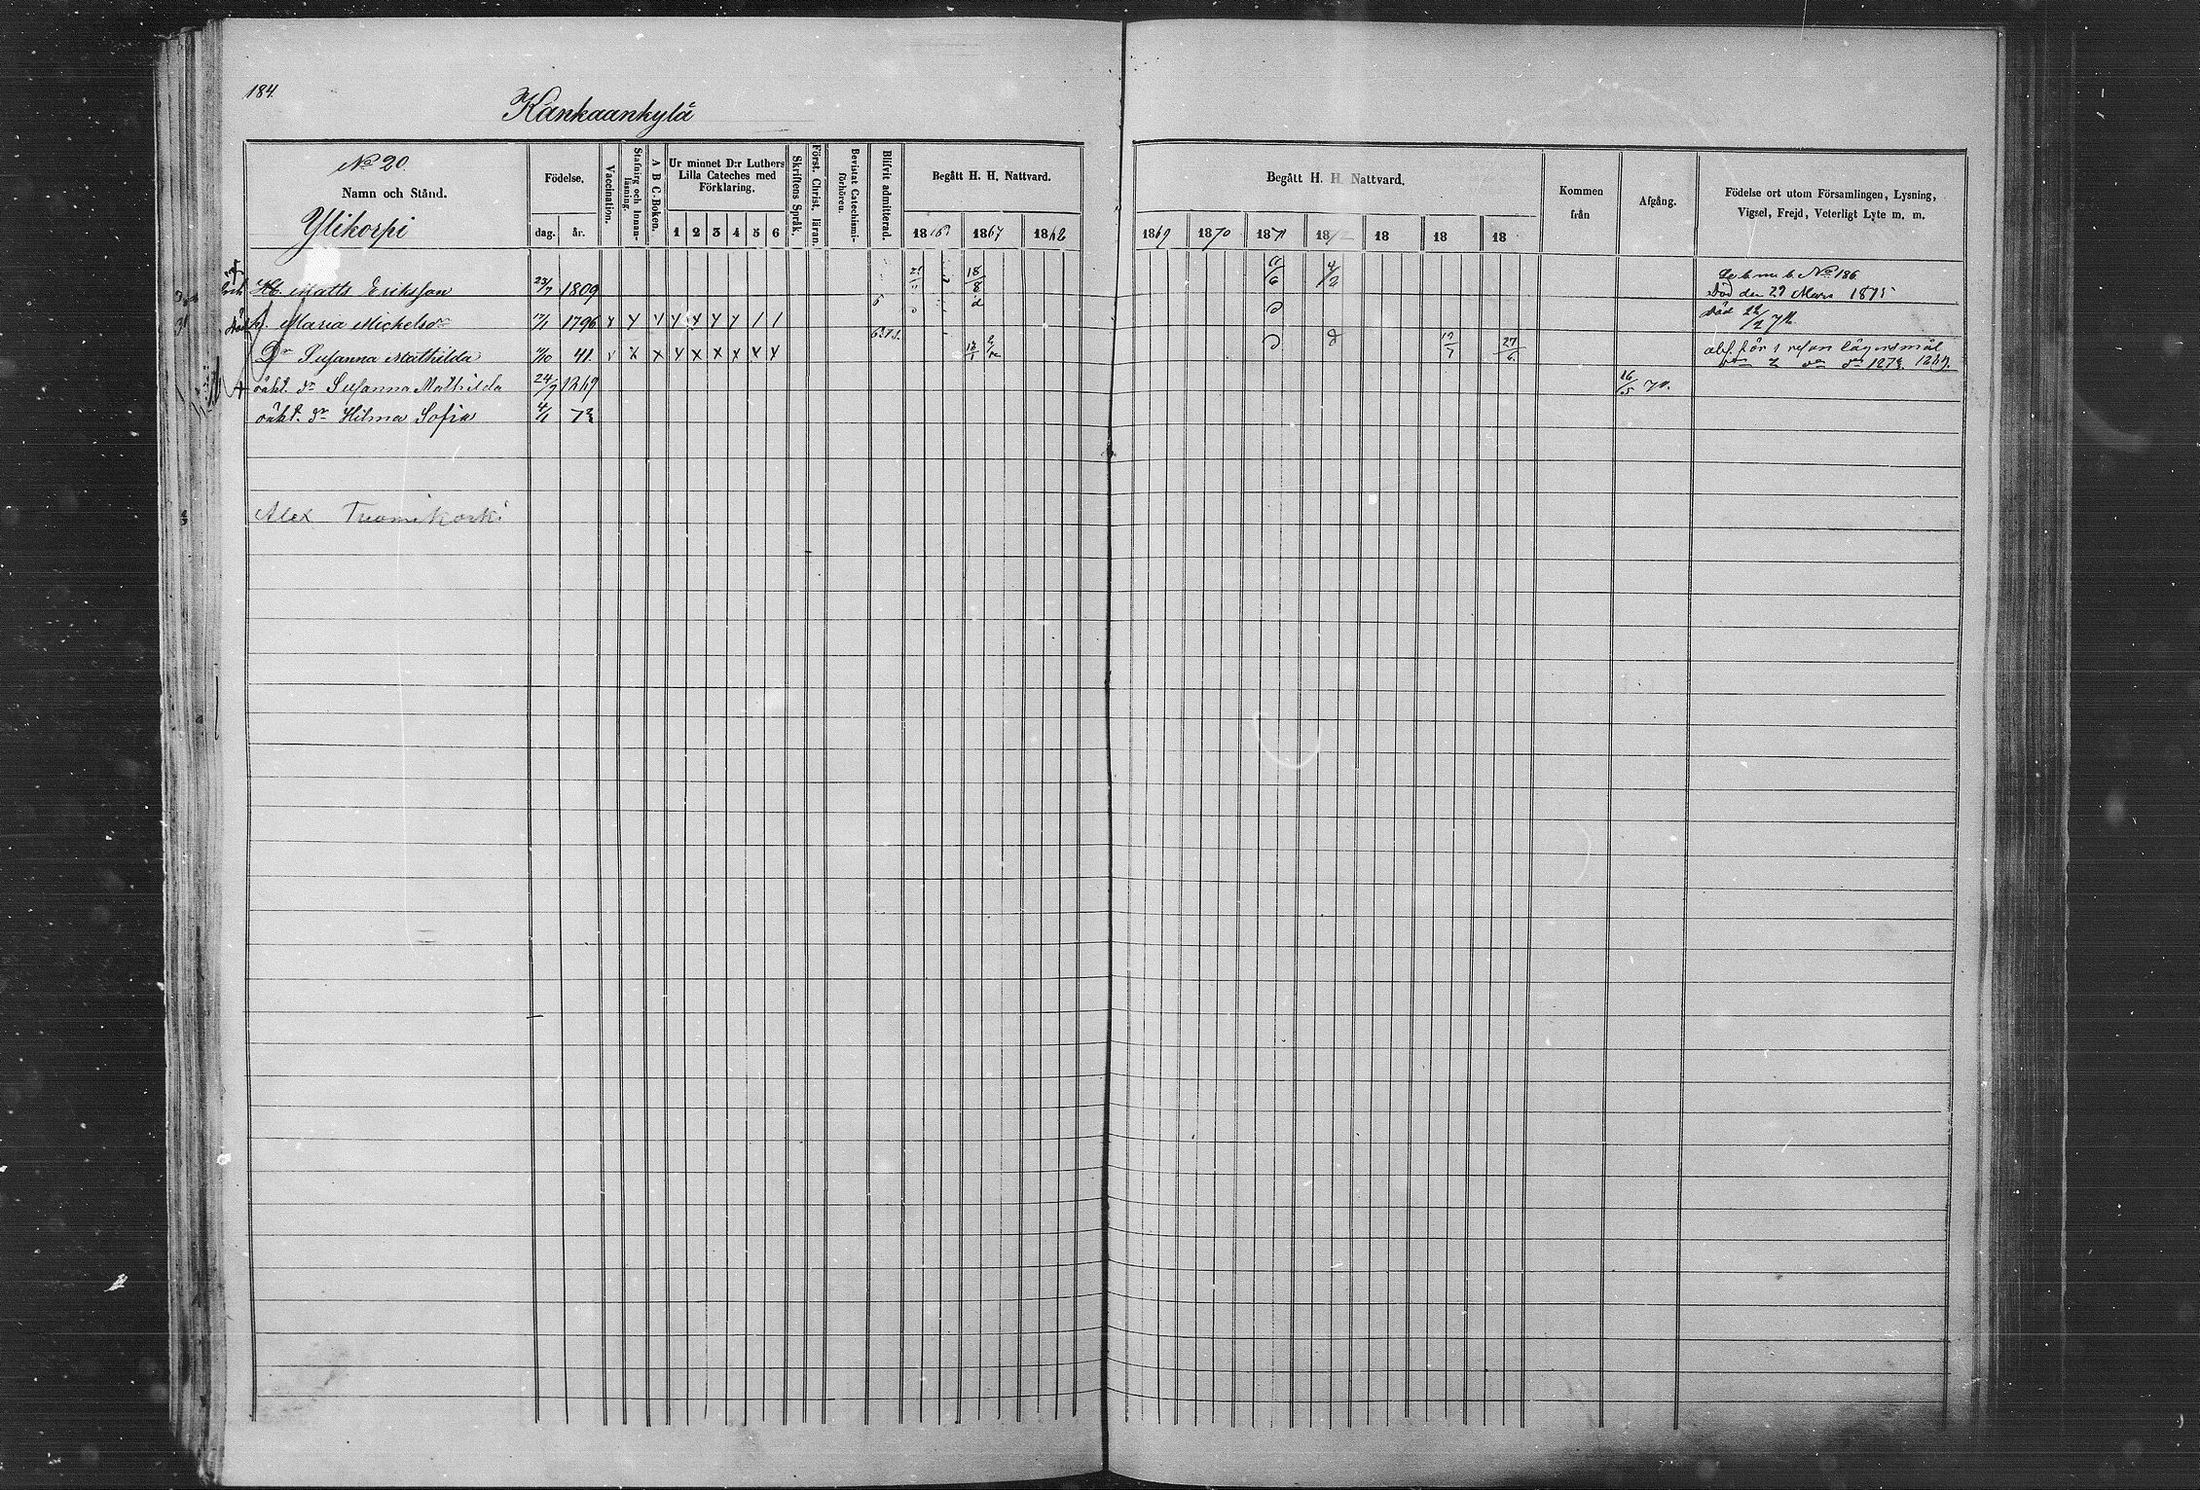 184.
Kankaankylä
No 20.
Namn och Stånd.
Ylikorpi
Födelse.
dag. år.
Vaccination.
Stafning och Innanläsning.
A B C. Boken.
Ur minnet D:r Luthers
Lilla Cateches med
Förklaring.
1 2 3 4 5 6
Skriftens Språk.
Först. Christ. läran.
Bevistat Catechismiförhören.
Blifvit admitterad.
Begått H. H. Nattvard.
18 1867 1868
Begått H. H. Nattvard.
1869 1870 1871 1872 18 18 18
Kommen
från
Afgång.
Födelse ort utom Församlingen, Lysning,
Vigsel, Frejd, Veterligt Lyte m. m.
Matts Eriksson 23/7 1809 18/8 11/6 4/2 No 186
Död den 29 Mars 1875
Maria Michelsdr 17/1 1796 x x x x x x x / / död
Dr Susanna Mathilda 41. x x x x x x x x x 17/7 27/6 abs. för 1 resan lägersmål
oäkt. dr Susanna Mathilda 24/9 1869 16/5 70.
oäkt. dr Hilma Sofia 4/1 73
Alex Tuomikoski